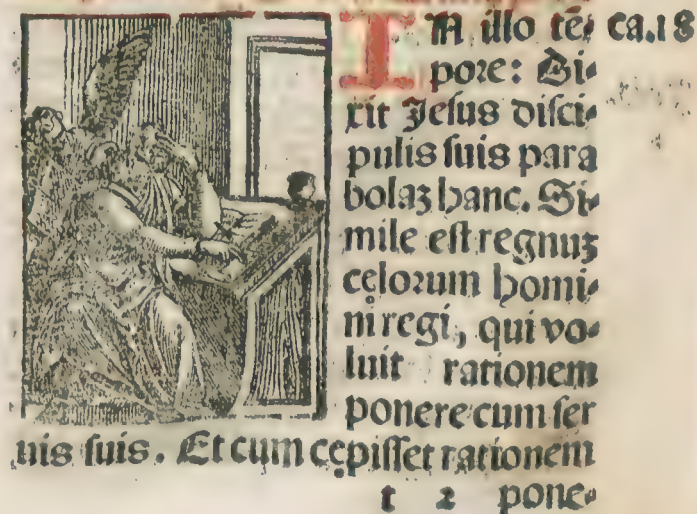 IN illo tẽ⸗ ca.18
pore: Di⸗
xit Jesus disci⸗
pulis suis para
bolaȝ hanc. Si⸗
mile est regnuȝ
celorum homi⸗
ni regi, qui vo⸗
luit rationem
ponere cum ser
uis suis. Et cum cepisset rationem
t 2 pone⸗